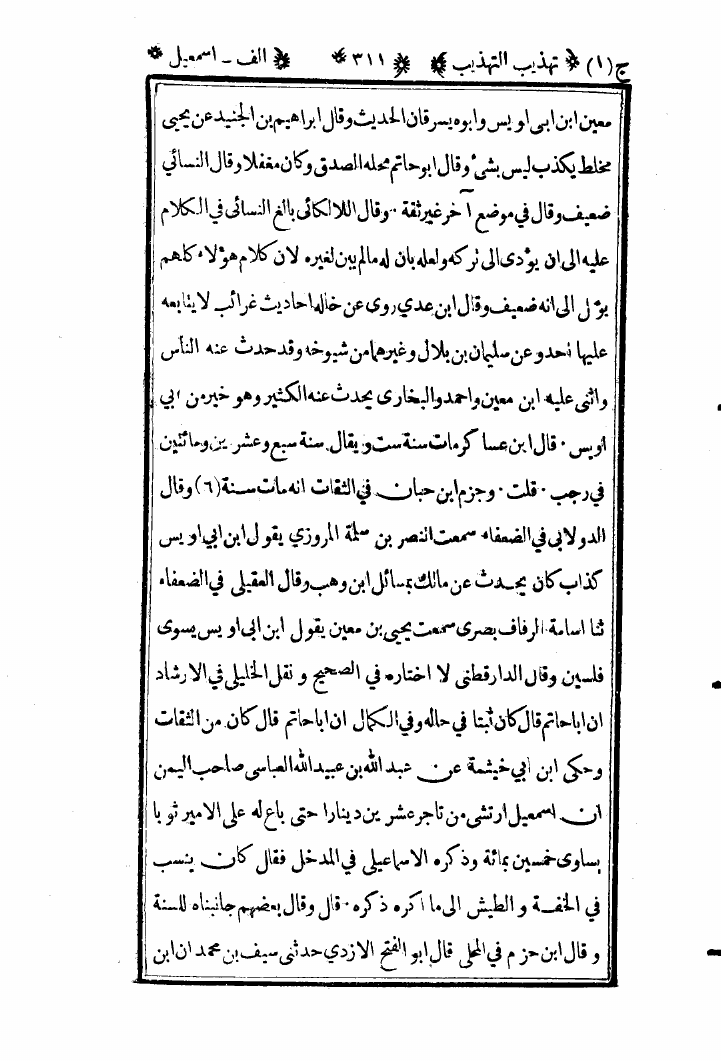 ج(١) ﴿ تهذيب التهذيب ﴾ ﴿ ٣١١ ﴾ ﴿ الف - اسمعيل ﴾
معين ابن ابى اويس وابوه يسرقان الحديث وقال ابراهيم بن الجنيد عن يحيى
مخلط يكذب ليس بشئ وقال ابوحاتم محله الصدق وكان مغفلا وقال النسائي
ضعيف وقال في موضع آخر غير ثقة ٠٠ وقال اللالكائى بالغ النسائى في الكلام
عليه الى ان يؤدى الى تركه ولعله بان له مالم يبن لغيره لان كلام هؤلاء كلهم
يؤل الى انه ضعيف وقال ابن عدي روى عن خاله احاديث غرائب لا يتابعه
عليها احد وعن سليمان بن بلال وغيرهما من شيوخه وقد حدث عنه الناس
واثنى عليه ابن معين واحمد والبخارى يحدث عنه الكثير وهو خير من ابي
اويس ٠ قال ابن عساكر مات سنة ست ويقال سنة سبع وعشرين ومائتين
في رجب ٠ قلت ٠ وجزم ابن حبان في الثقات انه مات سنة (٦) وقال
الدولابى في الضعفاء سمعت النصر بن سلمة المروزي يقول ابن ابي اويس
كذاب كان يحدث عن مالك بمسائل ابن وهب وقال العقيلى في الضعفاء
ثنا اسامة الرفاف بصرى سمعت يحيى بن معين يقول ابن ابى اويس يسوى
فلسين وقال الدارقطنى لا اختاره في الصحيح و نقل الخليلى في الارشاد
ان اباحاتم قال كان ثبتا في حاله وفي الكمال ان اباحاتم قال كان من الثقات
وحكى ابن ابي خيثمة عن عبد الله بن عبيد الله العباسى صاحب اليمن
ان اسمعيل ارتشى من تاجر عشرين دينارا حتى باع له على الامير ثوبا
يساوى خمسين بمائة وذكره الاسماعيلى في المدخل فقال كان ينسب
في الخفة و الطيش الى ما اكره ذكره ٠ قال وقال بعضهم جانبناه للسنة
و قال ابن حزم في المحلى قال ابو الفتح الازدي حدثنى سيف بن محمد ان ابن